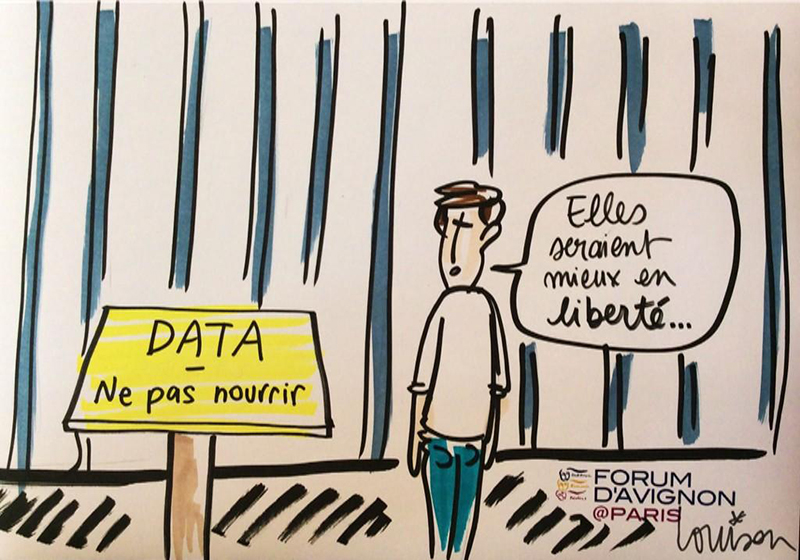 DATA
-
Ne pas nourrir
Elles
seraient
mieux en
liberté...
FORUM
D'AVIGNON
@PARIS
Louison